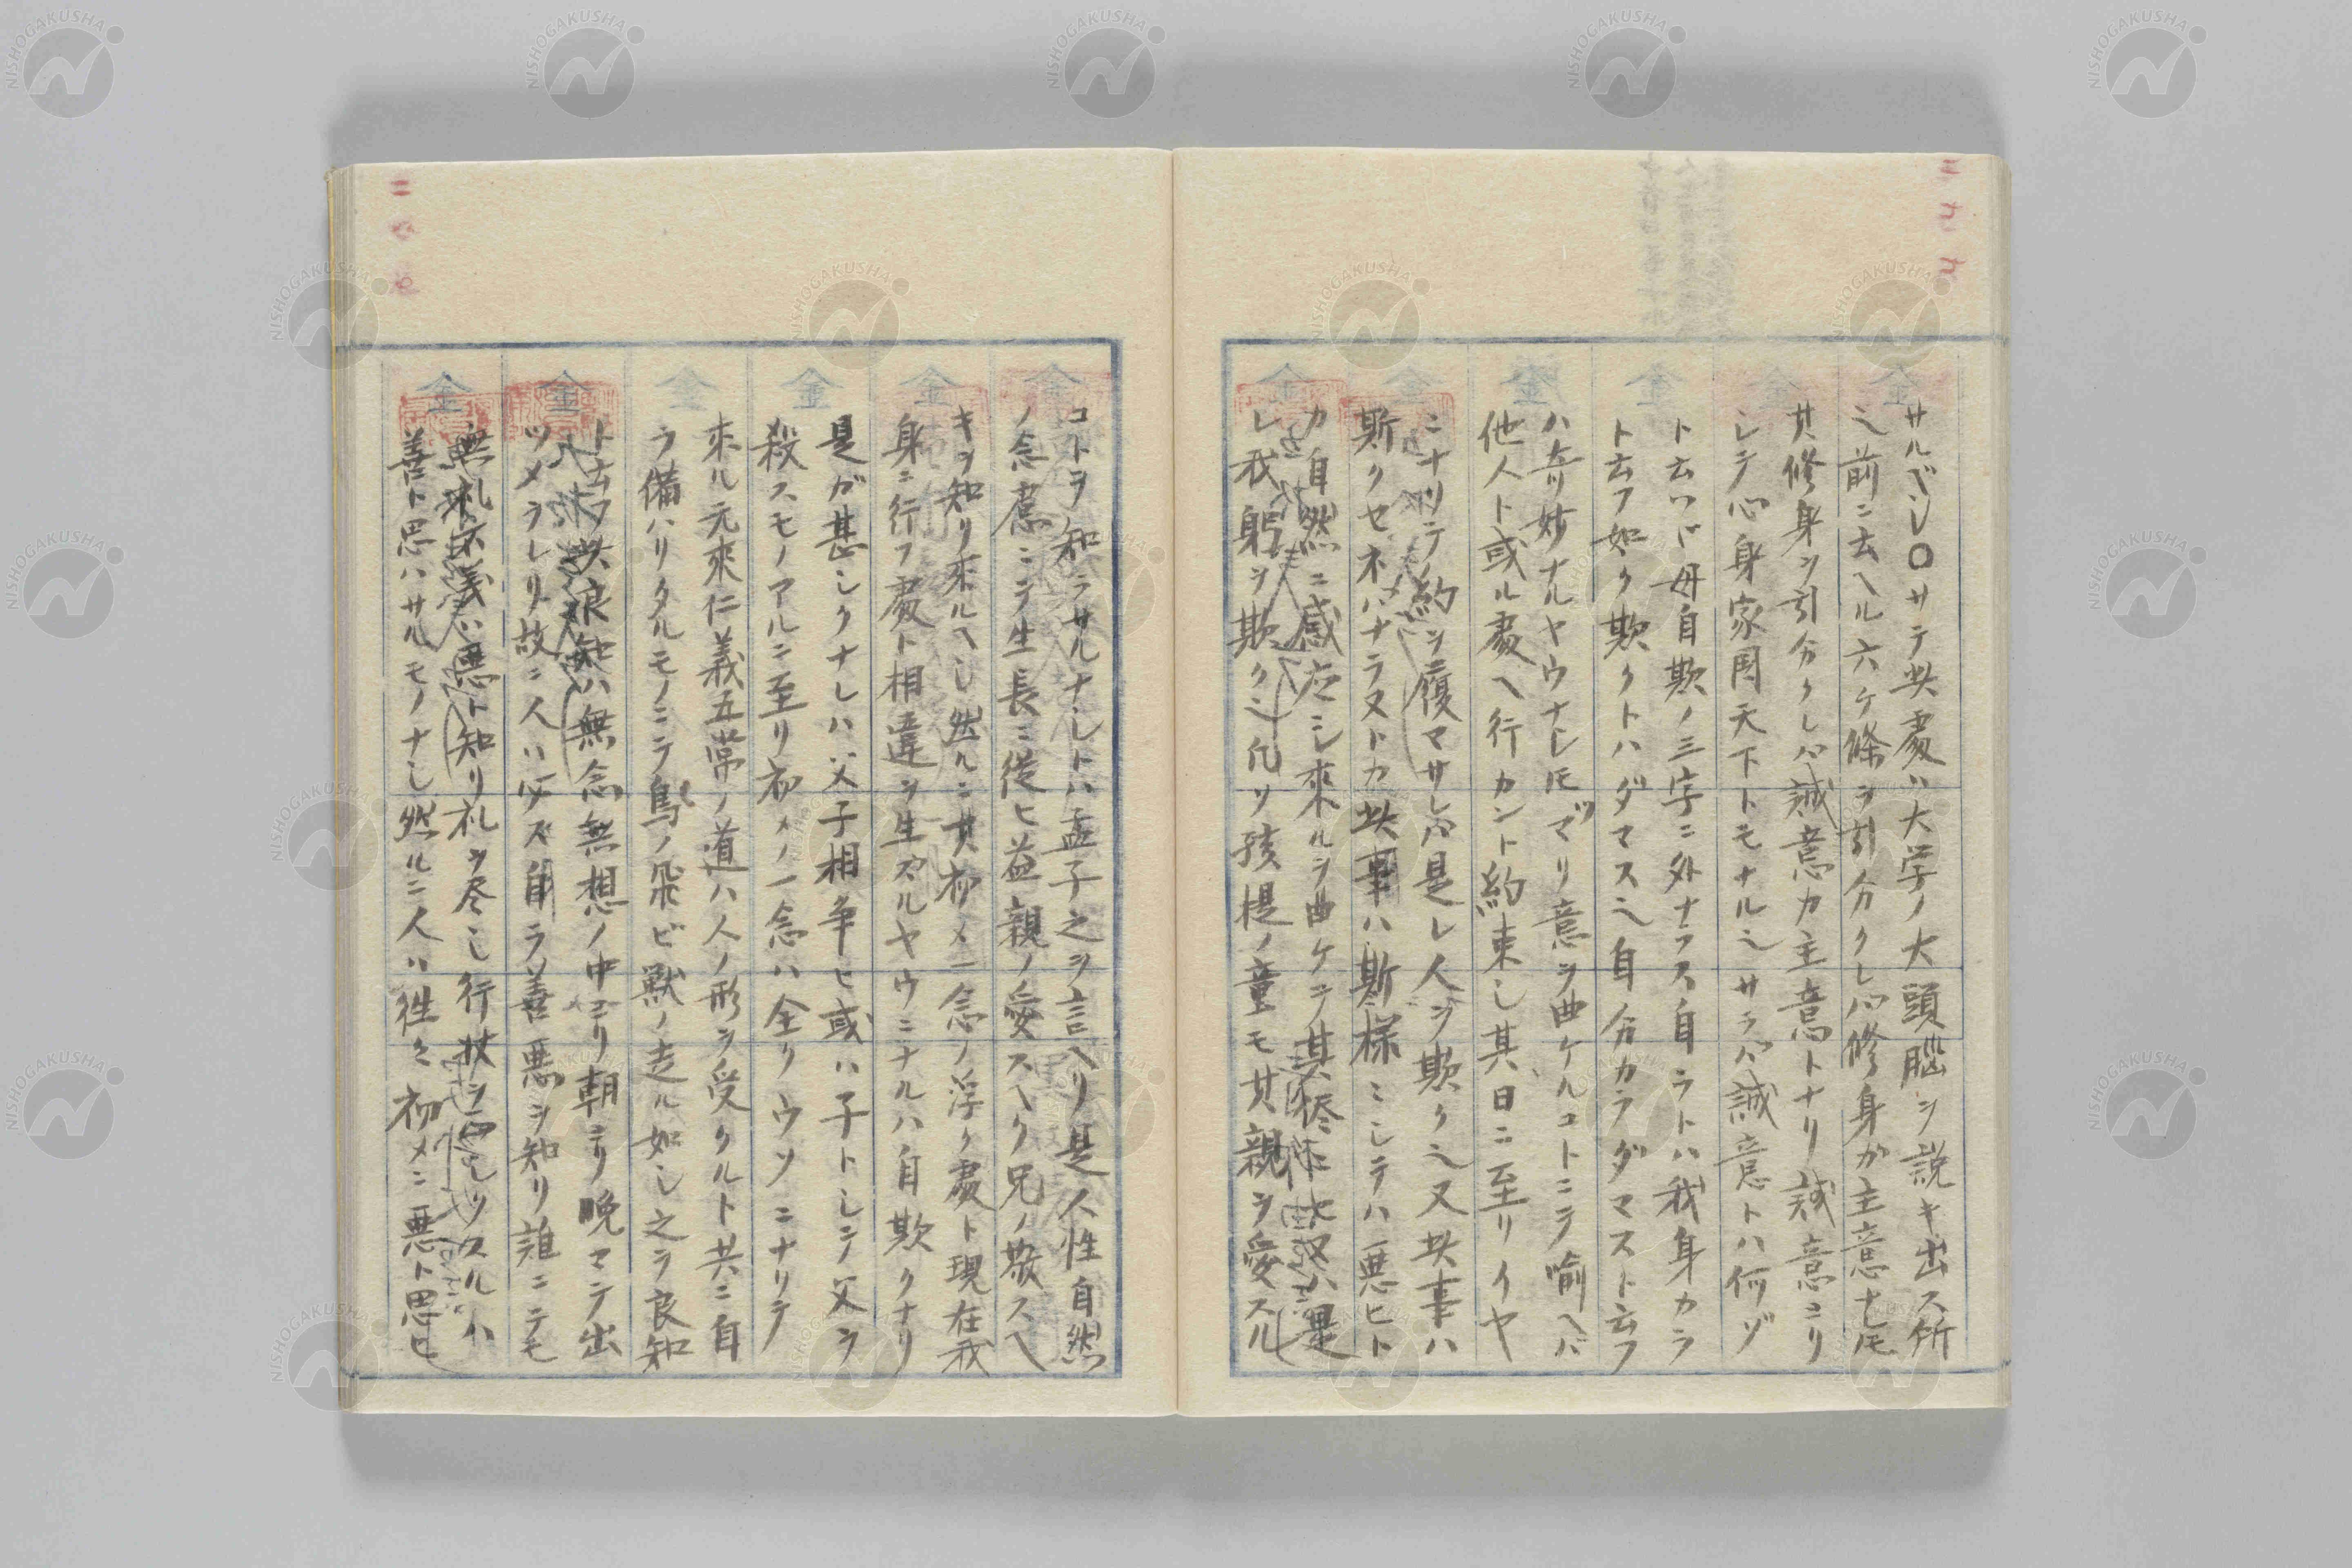 サルベシ〇サテ此處ハ大学ノ大頭腦ヲ説キ出ス所
ミ前ニ云ヘル六ケ條ヲ引分クレハ修身ガ主意ナレ𪜈
其修身ヲ引分クレハ誠意カ主意トナリ誠意ヨリ
シテ心身家国天下トモナルミサラハ誠意トハ何ゾ
ト云ハヾ毋自欺ノ三字ニ外ナラス自ラトハ我身カラ
ト云フ如ク欺クトハダマスミ自分カラダマスト云フ
ハ奇妙ナルヤウナレ𪜈ツマリ意ヲ曲ケルコトニテ喩ヘバ
他人ト或ル處ヘ行カント約束シ其日ニ至リイヤ
ニナリテ約ヲ履マサレハ是レ人ヲ欺クミ又此事ハ
斯クセネハナラヌトカ此事ハ斯様ミシテハ悪ヒト
カ自然ニ感応シ來ルヲ曲ケテ其
是
レ我躬ヲ欺クミ凡ソ孩提ノ童モ其親ヲ愛スル
コトヲ知ラサルナシトハ孟子之ヲ言ヘリ是人性自然
ノ念慮ニテ生長ニ従ヒ益親ノ愛スヘク兄ノ敬スヘ
キヲ知リ來ルヘシ然ルニ其初メ一念ノ浮ク處ト現在我
身ニ行フ處ト相違ヲ生ズルヤウニナルハ自欺クナリ
是ガ甚シクナレハ父子相争ヒ或ハ子トシテ父ヲ
殺スモノアルニ至リ初メノ一念ハ全クウソニナリテ
來ル元來仁義五常ノ道ハ人ノ形ヲ受クルト共ニ自
ラ備ハリタルモノニテ鳥ノ飛ビ獣ノ走ル如シ之ヲ良知
ト云フ此良知ハ無念無想ノ中ヨリ朝ヨリ晩マテ出
ツメラレリ故ニ人ハ必ズ自ラ善悪ヲ知リ誰ニテモ
無礼不義ハ悪ト知リ礼ヲ尽シ行
善ト思ハサルモノナシ然ルニ人ハ徃々初メニ悪ト思ヒ